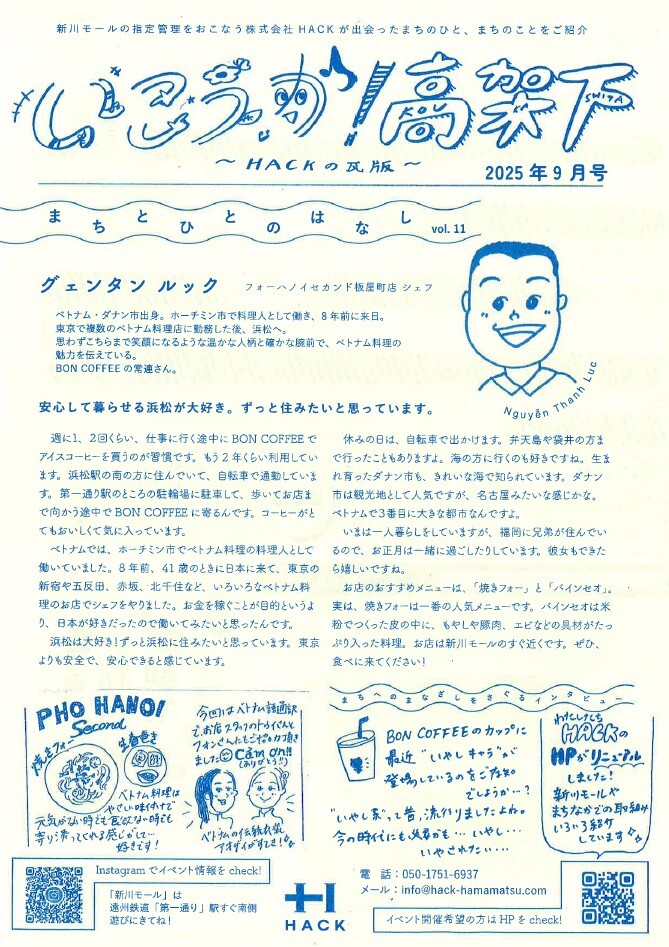 新川モールの指定管理をおこなう株式会社HACKが出会ったまちのひと、まちのことをご紹介
いい思う高架下
KOU
KA
SHITA
～HACKの瓦版～
2025年9月号
まちとひとのはなし vol. 11
グェンタン ルック フォーハノイセカンド板屋町店 シェフ
ベトナム・ダナン市出身。ホーチミン市で料理人として働き、8年前に来日。
東京で複数のベトナム料理店に勤務した後、浜松へ。
思わずこちらまで笑顔になるような温かな人柄と確かな腕前で、ベトナム料理の
魅力を伝えている。
BON COFFEEの常連さん。
Nguyễn Thanh Luc
安心して暮らせる浜松が大好き。ずっと住みたいと思っています。
週に1、2回くらい、仕事に行く途中にBON COFFEEで
アイスコーヒーを買うのが習慣です。もう2年くらい利用してい
ます。浜松駅の南の方に住んでいて、自転車で通勤していま
す。第一通り駅のところの駐輪場に駐車して、歩いてお店ま
で向かう途中でBON COFFEEに寄るんです。コーヒーがと
てもおいしくて気に入っています。
ベトナムでは、ホーチミン市でベトナム料理の料理人として
働いていました。8年前、41歳のときに日本に来て、東京の
新宿や五反田、赤坂、北千住など、いろいろなベトナム料
理のお店でシェフをやりました。お金を稼ぐことが目的というよ
り、日本が好きだったので働いてみたいと思ったんです。
浜松は大好き!ずっと浜松に住みたいと思っています。東京
よりも安全で、安心できると感じています。
休みの日は、自転車で出かけます。弁天島や袋井の方ま
で行ったこともありますよ。海の方に行くのも好きですね。生ま
れ育ったダナン市も、きれいな海で知られています。ダナン
市は観光地として人気ですが、名古屋みたいな感じかな。
ベトナムで3番目に大きな都市なんですよ。
いまは一人暮らしをしていますが、福岡に兄弟が住んでい
るので、お正月は一緒に過ごしたりしています。彼女もできた
ら嬉しいですね。
お店のおすすめメニューは、「焼きフォー」と「バインセオ」。
実は、焼きフォーは一番の人気メニューです。バインセオは米
粉でつくった皮の中に、もやしや豚肉、エビなどの具材がたっ
ぷり入った料理。お店は新川モールのすぐ近くです。ぜひ、
食べに来てください!
PHO HANOI
Second
焼きフォー
生春巻き
ベトナム料理は
やさしい味わいで
元気がない時も食欲ない時も
寄り添ってくれる感じがして…
好きです!
今回はベトナム語通訳
でお店スタッフのトゥイさんと
フォンさんにもご協力頂き
ました☺ Cảm ơn!!
(ありがとう!!)
ベトナムの伝統衣装
アオザイがすてき!
まちへのまなざしをさぐるインタビュー
BON COFFEEのカップに
最近“いやしキャラ”が
登場しているのをご存知
でしょうか…?
“いやし系”って昔、流行りましたよね。
今の時代にも必要かも…いやし…
いやされたい…
わたしたち
HACKの
HPがリニューアル
しました!
新川モールや
まちなかでの取り組み
いろいろ紹介
しています
Instagramでイベント情報をcheck!
「新川モール」は
遠州鉄道「第一通り」駅すぐ南側
遊びにきてね!
HACK
電 話:050-1751-6937
メール:info@hack-hamamatsu.com
イベント開催希望の方はHPをcheck!